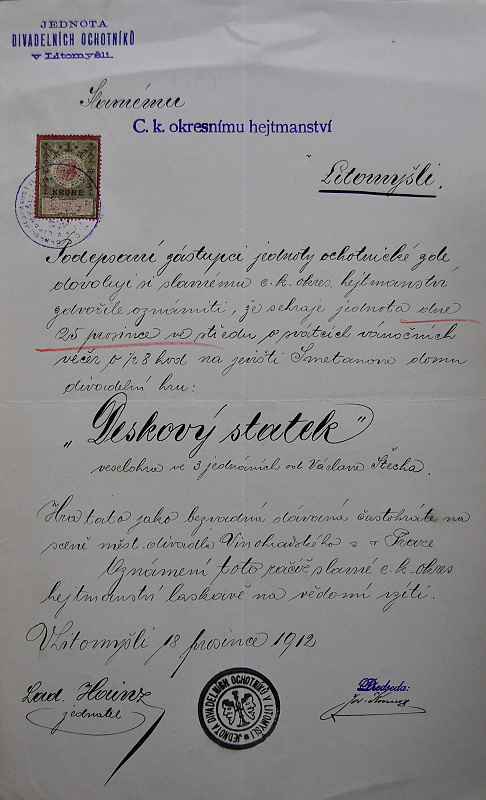 JEDNOTA
DIVADELNÍCH OCHOTNÍKŮ
v Litomyšli
Slavnému
C. k. okresnímu hejtmanství
v Litomyšli.
1
KRONE
Podepsaní zástupci jednoty ochotnické zde
dovolují si slavnému c.k. okres. hejtmanství
zdvořile oznámiti, že sehraje jednota dne
25 prosince ve středu o svátcích vánočních
večer o 1/2 8 hod na jevišti Smetanova domu
divadelní hru:
„Deskový statek"
veselohra ve 3 jednáních od Václava Štecha.
Hra tato jako bezvadná dávána častokráte na
scéně měst. divadla Vinohradského v Praze
Oznámení toto račiž slavné c.k. okres
hejtmanství laskavě na vědomí vzíti.
V Litomyšli 18 prosince 1912
Lad. Hainz
jednatel
JEDNOTA DIVADELNÍCH OCHOTNÍKŮ V LITOMYŠLI
Předseda: